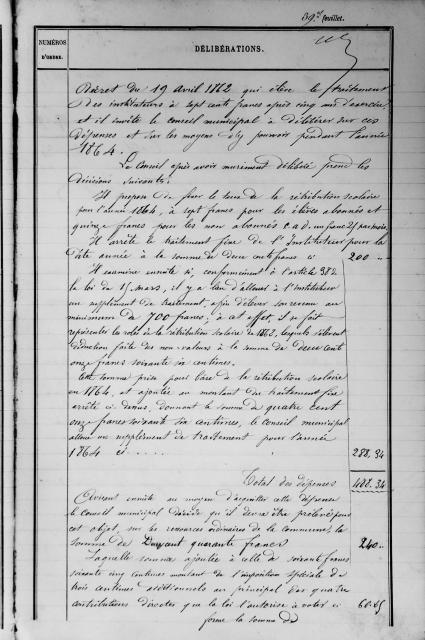 39e feuillet.
NUMÉROS
D'ORDRE.
DÉLIBÉRATIONS.
Décret du 19 avril 1862 qui élève le traitement
des instituteurs à sept cents francs après cinq ans d'exercice,
et il invite le conseil municipal à délibérer sur ces
dépenses et sur les moyens d'y pourvoir pendant l'année
1864.
Le Conseil après avoir murement délibéré prend les
décisions suivantes:
Il propose de fixer le taux de la rétribution scolaire
pour l'année 1864, à sept francs pour les élèves abonnés et
quinze francs pour les non abonnés c.a.d. un franc 25 par mois.
Il arrête le traitement fixe de l'Instituteur pour la
dite année à la somme de deux cents francs ci 200 "
Il examine ensuite si, conformément à l'article 38 de
la loi de 15 mars, il y a lieu d'allouer à l'instituteur
un supplément de traitement, afin d'élever son revenu au
minimum de 700 francs; à cet effet, il se fait
représenter les rôles de la rétribution scolaire de 1862, lesquels s'élèvent
déduction faite des non-valeurs à la somme de deux cent
onze francs soixante six centimes.
Cette somme prise pour base de la rétribution scolaire
en 1864, et ajoutée au montant du traitement fixe
arrêté ci dessus, donnant la somme de quatre cent
onze francs soixante six centimes, le Conseil municipal
alloue un supplément de traitement pour l'année
1864 ci . . . . . 288,34
Total des dépenses 488,34
Avisant ensuite au moyen d'acquitter cette dépense
le Conseil municipal décide qu'il devra être prélevé pour
cet objet, sur les ressources ordinaires de la commune, la
somme de Deux cent quarante francs 240 "
Laquelle somme ajoutée à celle de soixante francs
soixante cinq centimes montant de l'imposition spéciale de
trois centimes additionnels au principal des quatre
contributions directes que la loi l'autorise à voter ci 60.65
forme la somme de